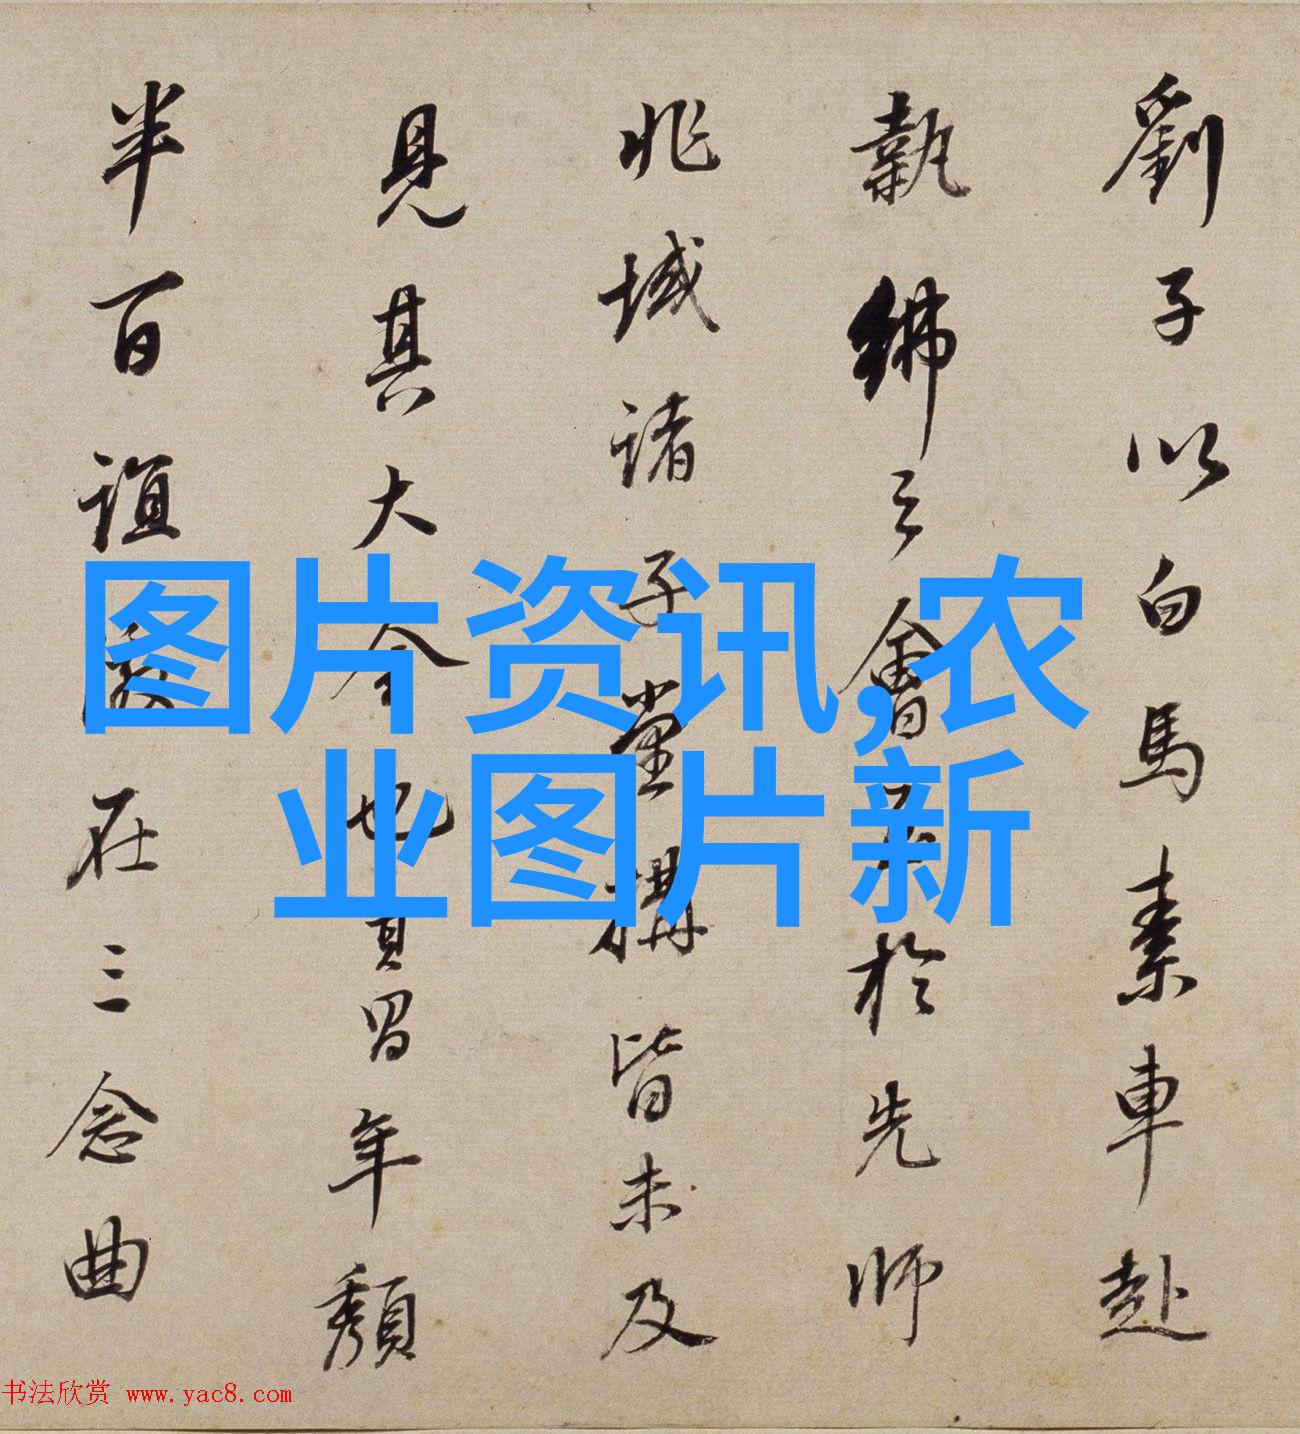 劉子以白馬素車赴
執紼之會於先師
兆域諸子堂構皆未及
見其大全也年頹
半百誼在三念曲
图片资讯,农
业图片新
书法欣赏 www.yac8.com